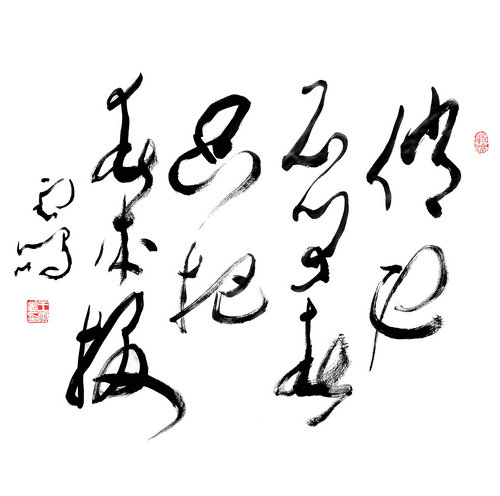 俏也
不争春
只把
春来报